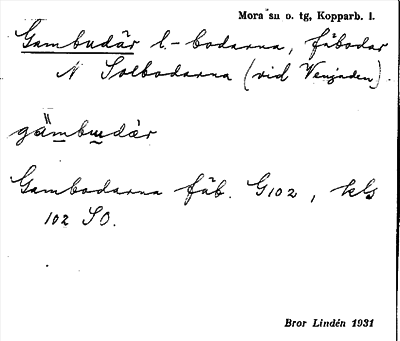 Mora su o. tg, Kopparb. l.
Gambudär l. -bodarna, fäbodar
N Solbodarna (vid Venjaden).
gämbudär
Gambodarna fäb. G102, kls
102 SO.
Bror Lindén 1931